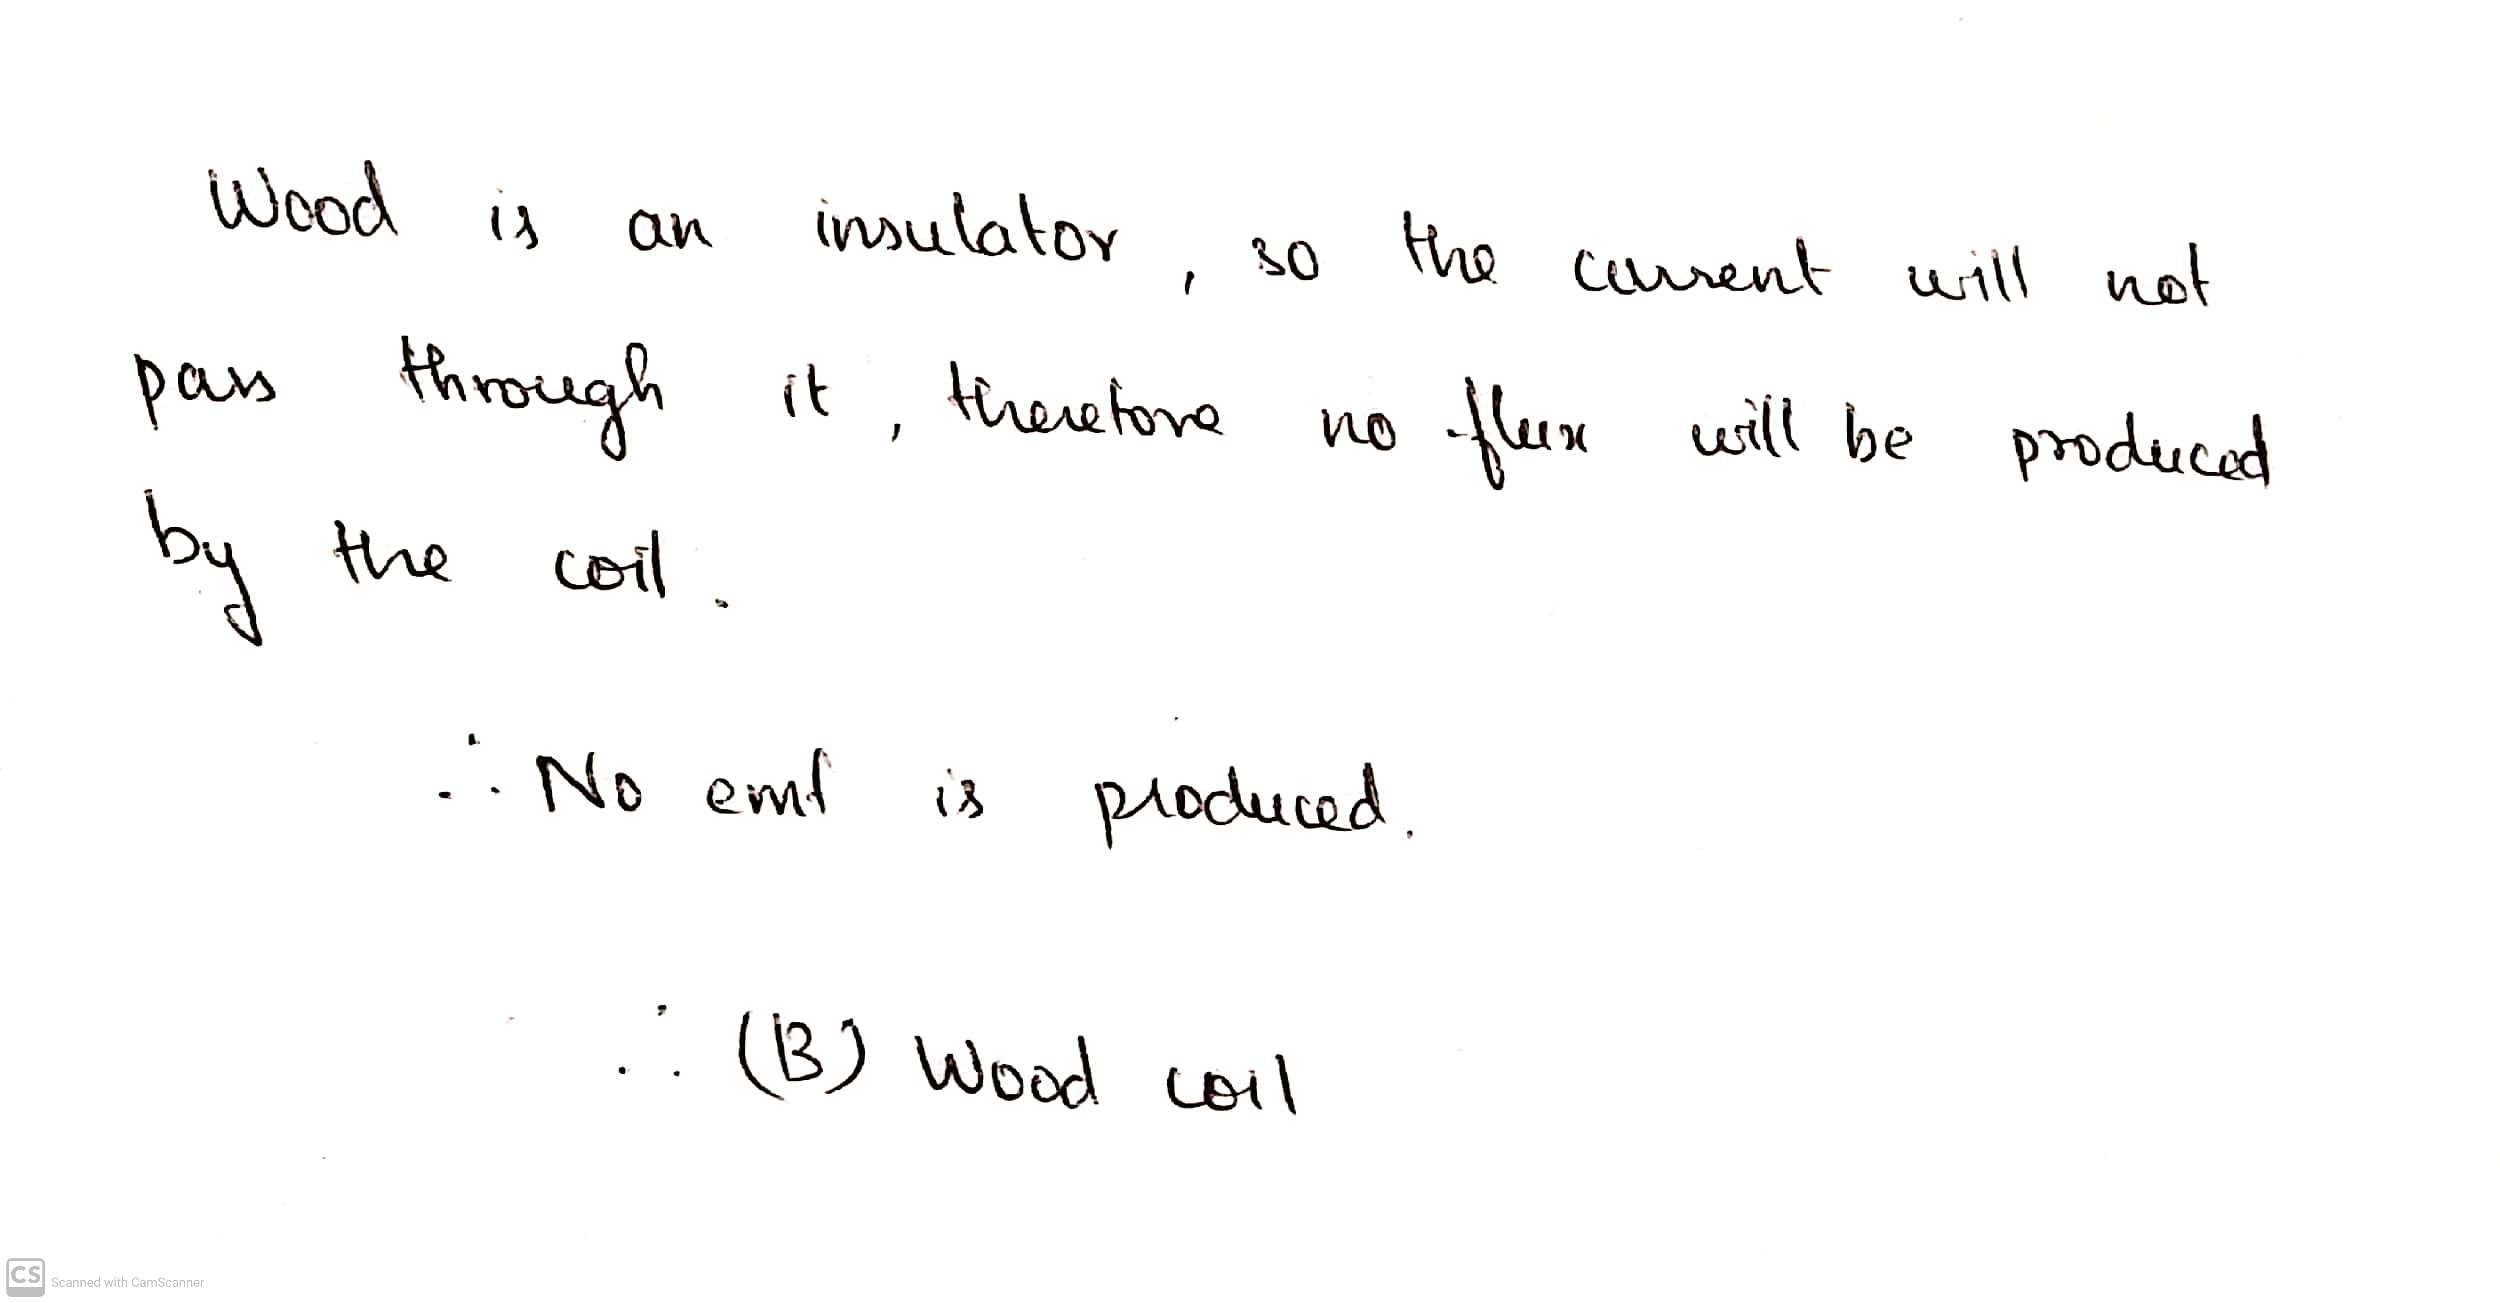 Wood is an insulator, so the current will not
pass through it, therefore no flux will be produced
by the coil.
∴ No emf is produced.
∴ (B) Wood coil
CS Scanned with CamScanner